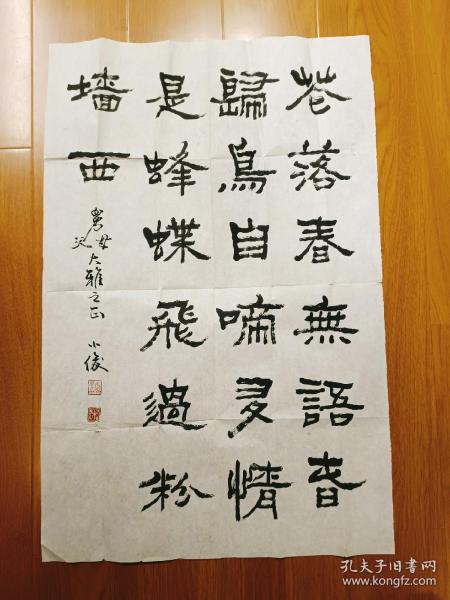 花落春無語春
歸鳥自啼多情
是蜂蝶飛過粉
墙西
父母大雅之正
小俊
孔夫子旧书网
www.kongfz.com